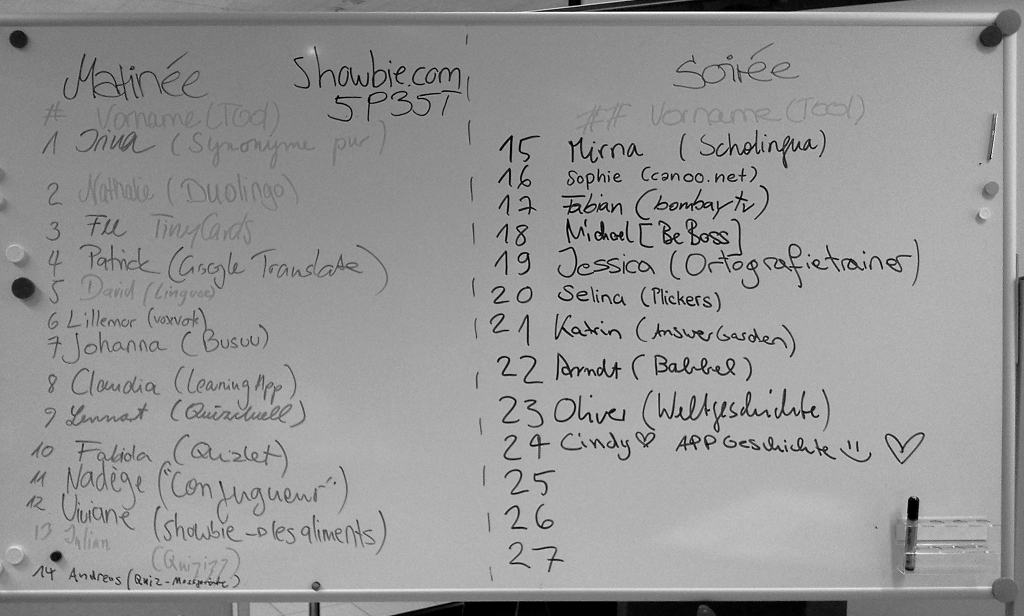 Matinée
Showbie.com
5P35T
# Vorname (Tool)
1 Irina (Synonyme pur)
2 Nathalie (Duolingo)
3 Fee TinyCards
4 Patrick (Google Translate)
5 David (Linguee)
6 Lillemor (voxvote)
7 Johanna (Busuu)
8 Claudia (LearningApp)
9 Lennart (Quizduell)
10 Fabiola (Quizlet)
11 Nadège ("Conjugueur")
12 Viviane (Showbie → les aliments)
13 Julian (Quizizz)
14 Andreas (Quiz-
Soirée
## Vorname (Tool)
15 Mirna (Scholingua)
16 Sophie (canoo.net)
17 Fabian (bombay tv)
18 Michael [BeBoss]
19 Jessica (Ortografietrainer)
20 Selina (Plickers)
21 Katrin (AnswerGarden)
22 Arndt (Babbel)
23 Oliver (Weltgeschichte)
24 Cindy♡ APP Geschichte :) ♡
25
26
27